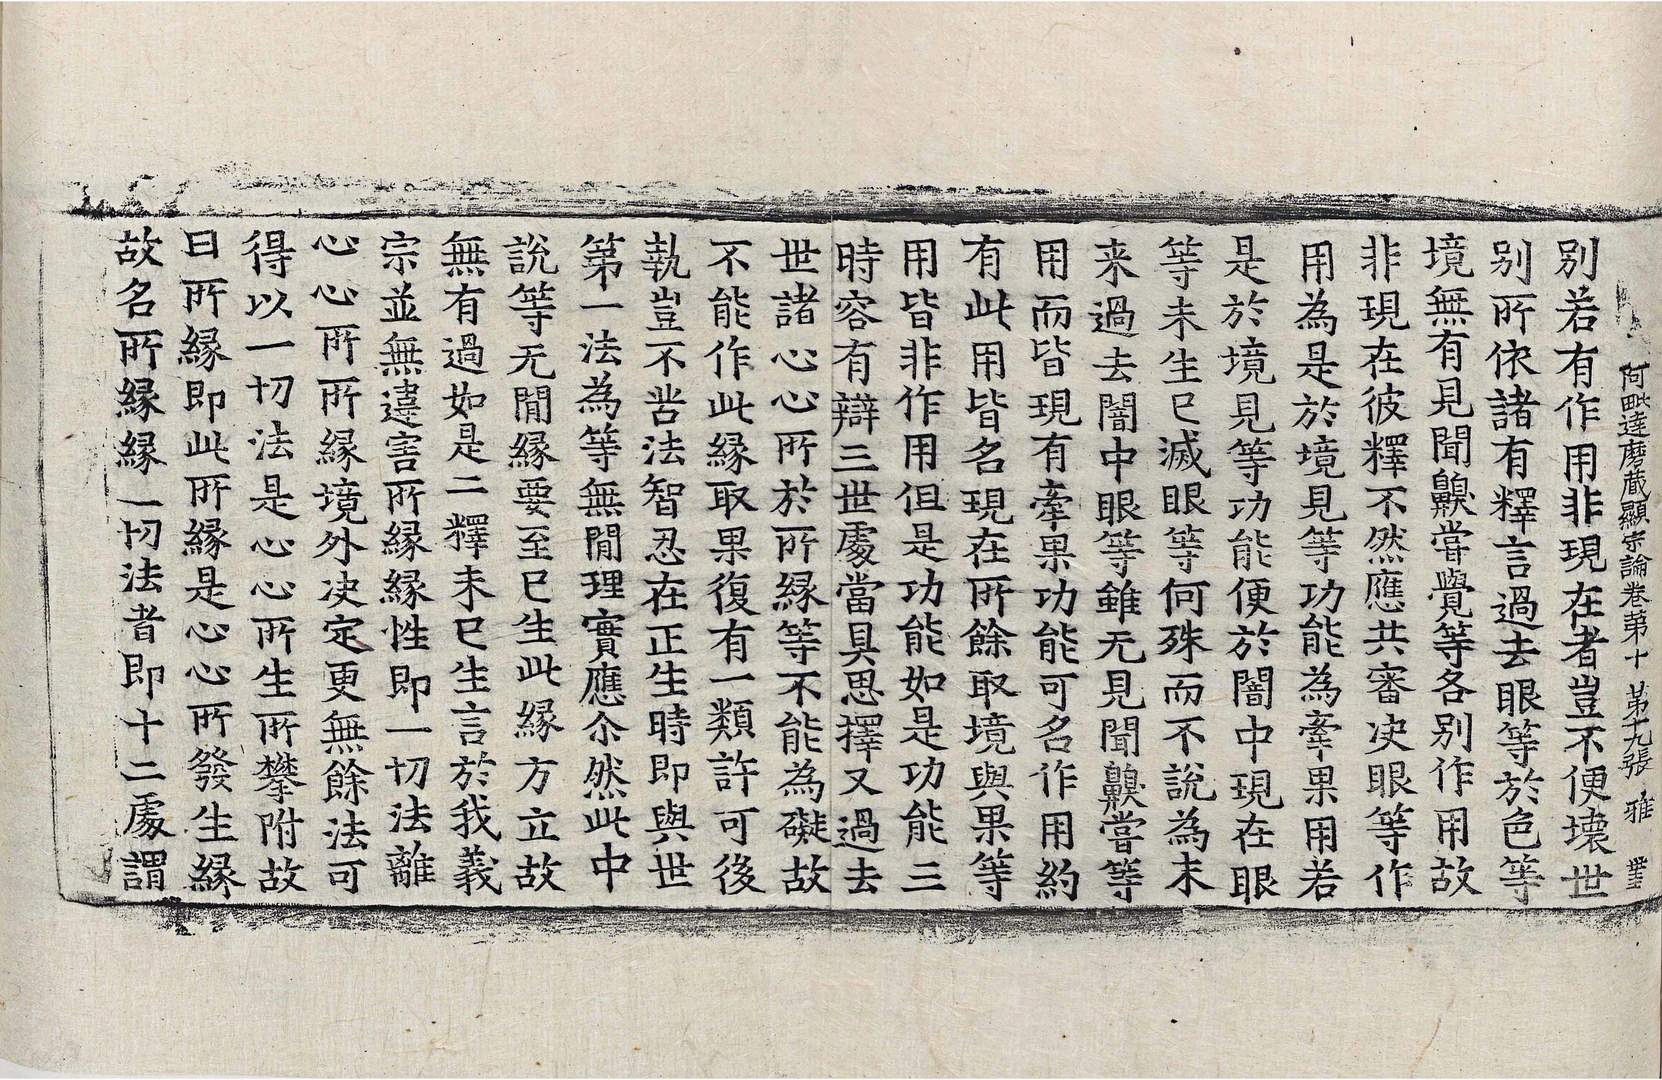 阿毗達磨藏顯宗論卷第十 第十九張 雅
別若有作用非現在者豈不便壞世
別所依諸有釋言過去眼等於色等
境無有見聞齅甞覺等各別作用故
非現在彼釋不然應共審決眼等作
用為是於境見等功能為牽果用若
是於境見等功能便於闇中現在眼
等未生已滅眼等何殊而不說為未
来過去闇中眼等雖无見聞齅甞等
用而皆現有牽果功能可名作用約
有此用皆名現在所餘取境與果等
用皆非作用但是功能如是功能三
時容有辯三世處當具思擇又過去
世諸心心所於所緣等不能為礙故
不能作此緣取果復有一類許可後
執豈不苦法智忍在正生時即與世
第一法為等無間理實應尒然此中
說等无間緣要至已生此緣方立故
無有過如是二釋未已生言於我義
宗並無違害所緣緣性即一切法離
心心所所緣境外決定更無餘法可
得以一切法是心心所生所攀附故
曰所緣即此所緣是心心所發生緣
故名所緣緣一切法者即十二處謂